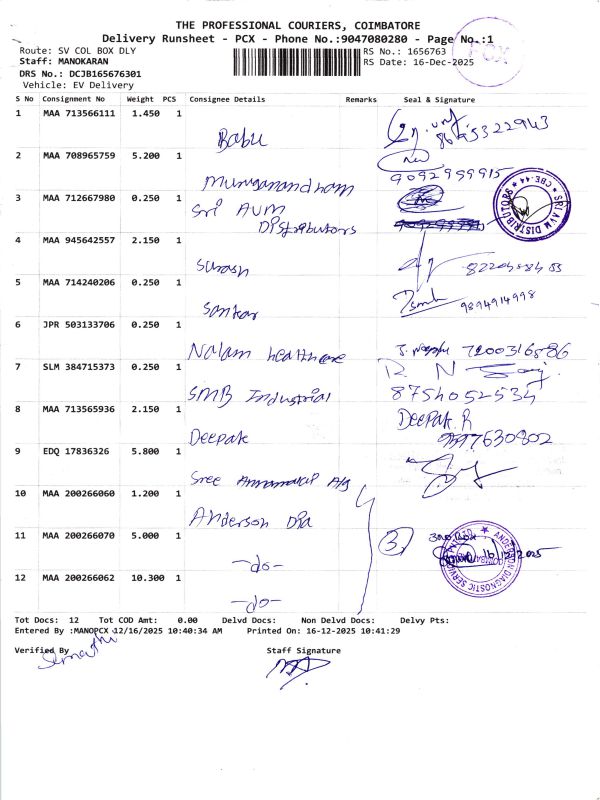 THE PROFESSIONAL COURIERS, COIMBATORE
Delivery Runsheet - PCX - Phone No.:9047080280 - Page No.:1
Route: SV COL BOX DLY RS No.: 1656763
Staff: MANOKARAN RS Date: 16-Dec-2025
DRS No.: DCJB165676301
Vehicle: EV Delivery
PCX
S No Consignment No Weight PCS Consignee Details Remarks Seal & Signature
1 MAA 713566111 1.450 1 Babu
2 MAA 708965759 5.200 1 Muruganandham 9092999915
3 MAA 712667980 0.250 1 Sri AVM
Distributors
SRI AVM DISTRIBUTORS ★ CBE-44 ★
4 MAA 945642557 2.150 1 Suresh
5 MAA 714240206 0.250 1 Sankar 9894914998
6 JPR 503133706 0.250 1 Nalam healthcare 7200316586
7 SLM 384715373 0.250 1 SMB Industrial 8754052534
8 MAA 713565936 2.150 1 Deepak Deepak.R
9 EDQ 17836326 5.800 1 Sree
10 MAA 200266060 1.200 1 Anderson Dia
11 MAA 200266070 5.000 1 -do- 3
ANDERSON DIAGNOSTIC SERVICES
16/12/2025
12 MAA 200266062 10.300 1 -do-
Tot Docs: 12 Tot COD Amt: 0.00 Delvd Docs: Non Delvd Docs: Delvy Pts:
Entered By :MANOPCX 12/16/2025 10:40:34 AM Printed On: 16-12-2025 10:41:29
Verified By Staff Signature